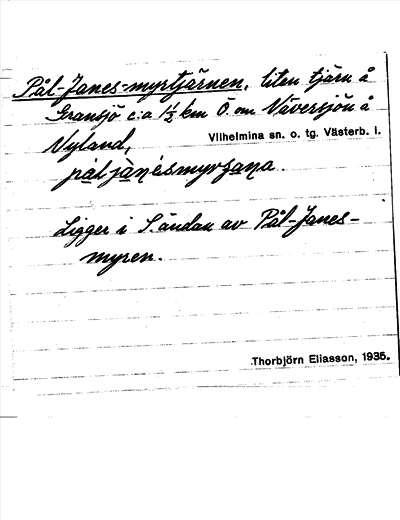 Pål-Janes-myrtjärnen, liten tjärn å
Gransjö c:a 1½ km Ö. om Näversjön å
Nyland,
Vilhelmina sn. o. tg. Västerb. l.
Ligger i S. ändan av Pål-Janes-
myren.
Thorbjörn Eliasson, 1935.